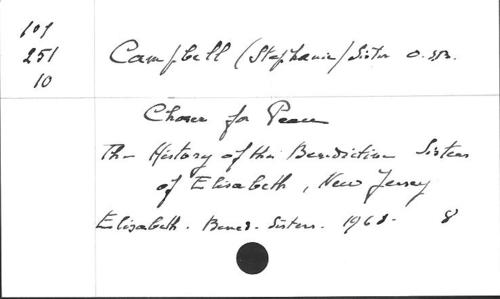 109
251
10
Campbell (Stephanie) Sister O.SB.
Chosen for Peace
The History of the Benedictine Sisters
of Elisabeth, New Jersey
Elisabeth. Bened. Sisters. 1968. 8